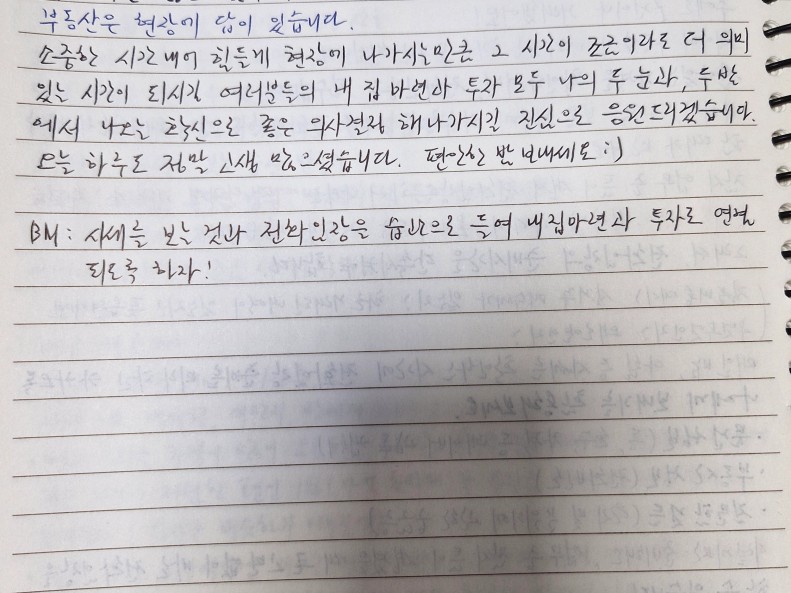 부동산은 현장에 답이 있습니다.
소중한 시간 내어 힘들게 현장에 나가시는만큼 그 시간이 조금이라도 더 의미
있는 시간이 되시길 여러분들의 내 집 마련과 투자 모두 나의 두 눈과, 두 발
에서 나오는 확신으로 좋은 의사결정 해나가시길 진심으로 응원드리겠습니다.
오늘 하루도 정말 고생 많으셨습니다. 편안한 밤 보내세요 :)
BM : 시세를 보는 것과 전화임장을 습관으로 들여 내집마련과 투자로 연결
되도록 하자!